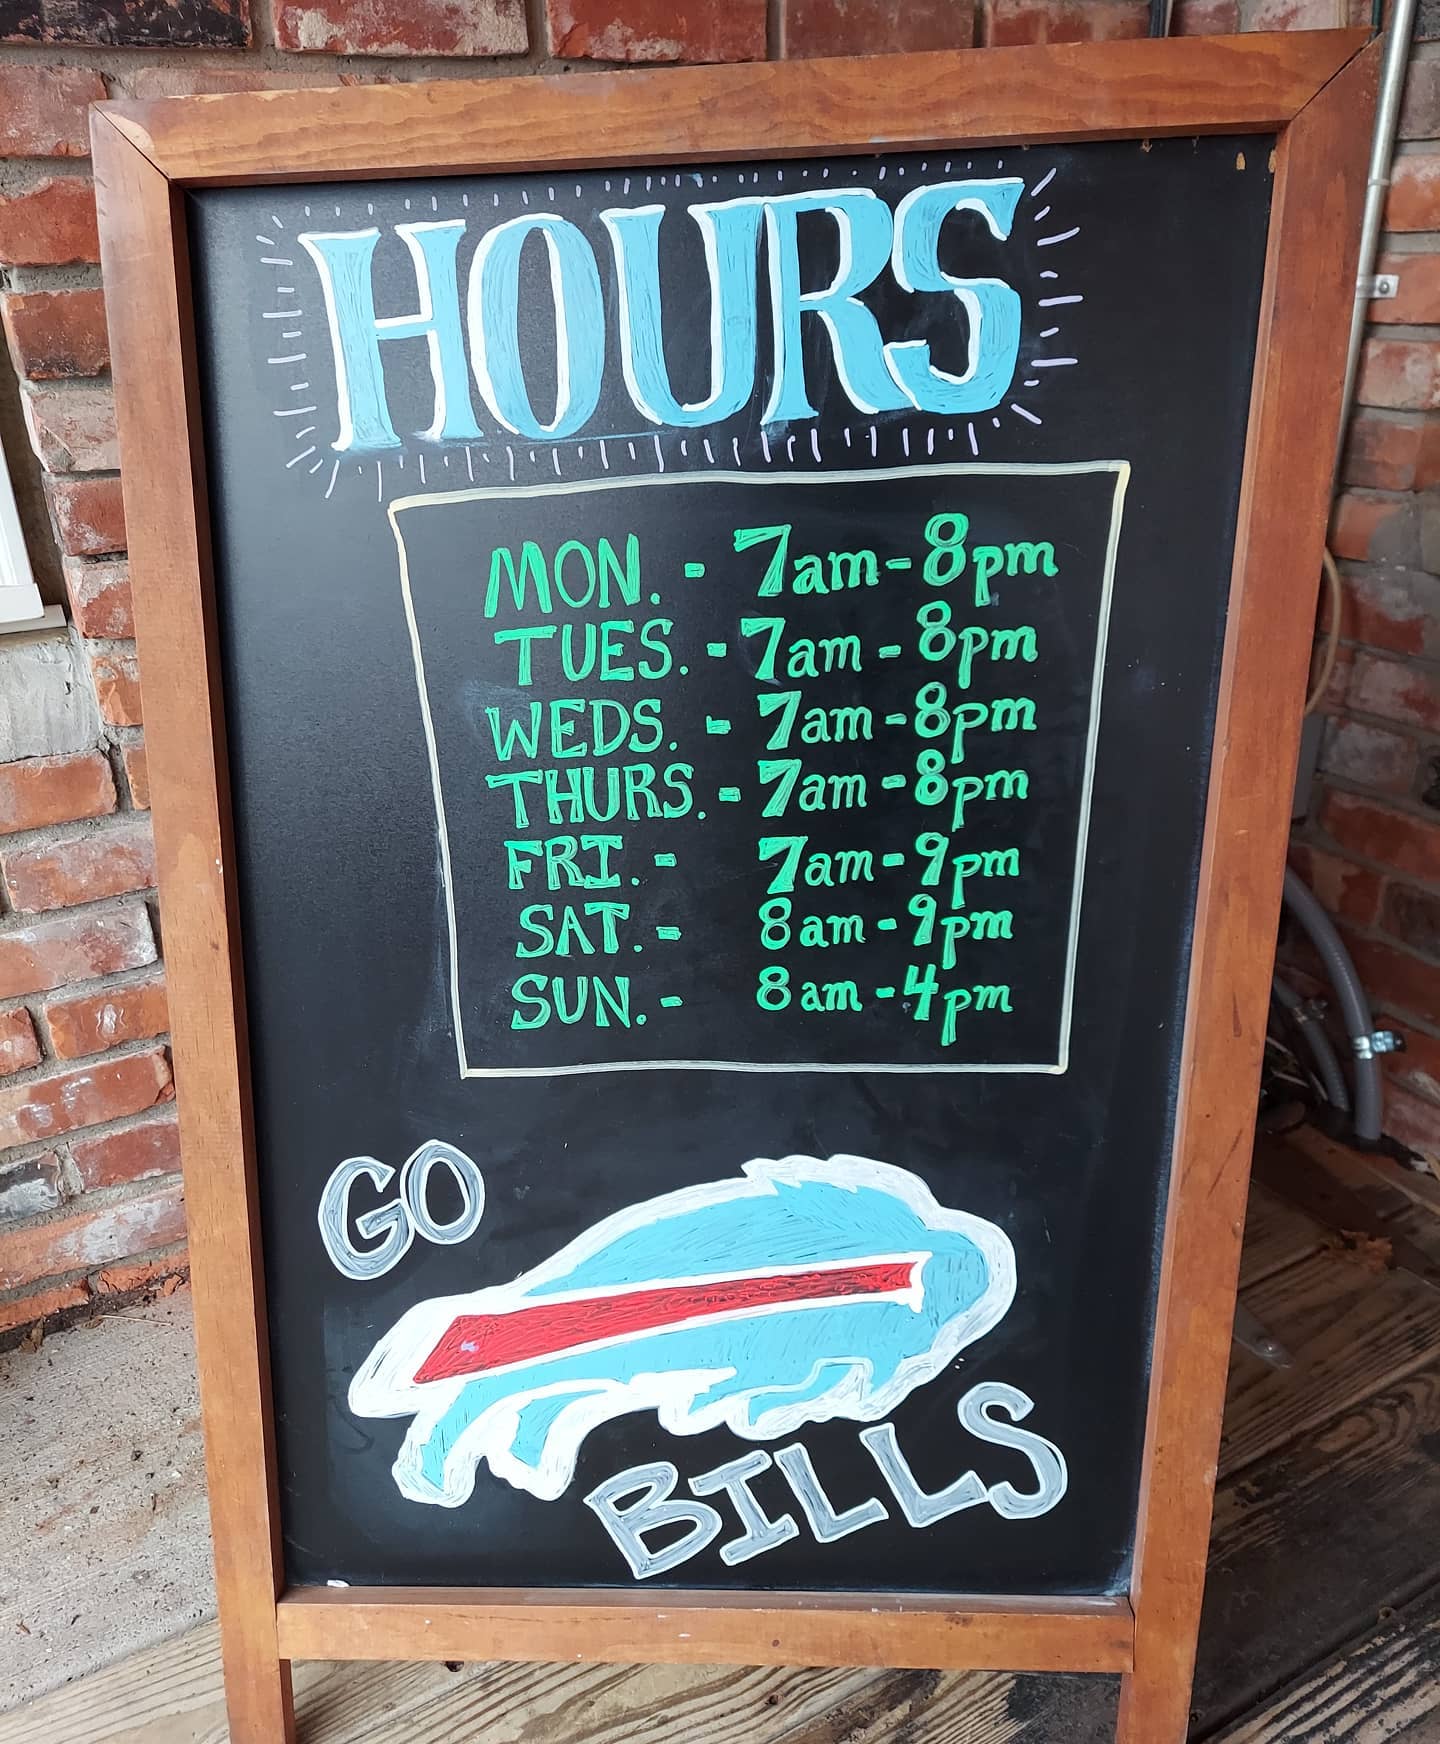 HOURS
MON. - 7am - 8pm
TUES. - 7am - 8pm
WEDS. - 7am - 8pm
THURS. - 7am - 8pm
FRI. - 7am - 9pm
SAT. - 8am - 9pm
SUN. - 8am - 4pm
GO
BILLS